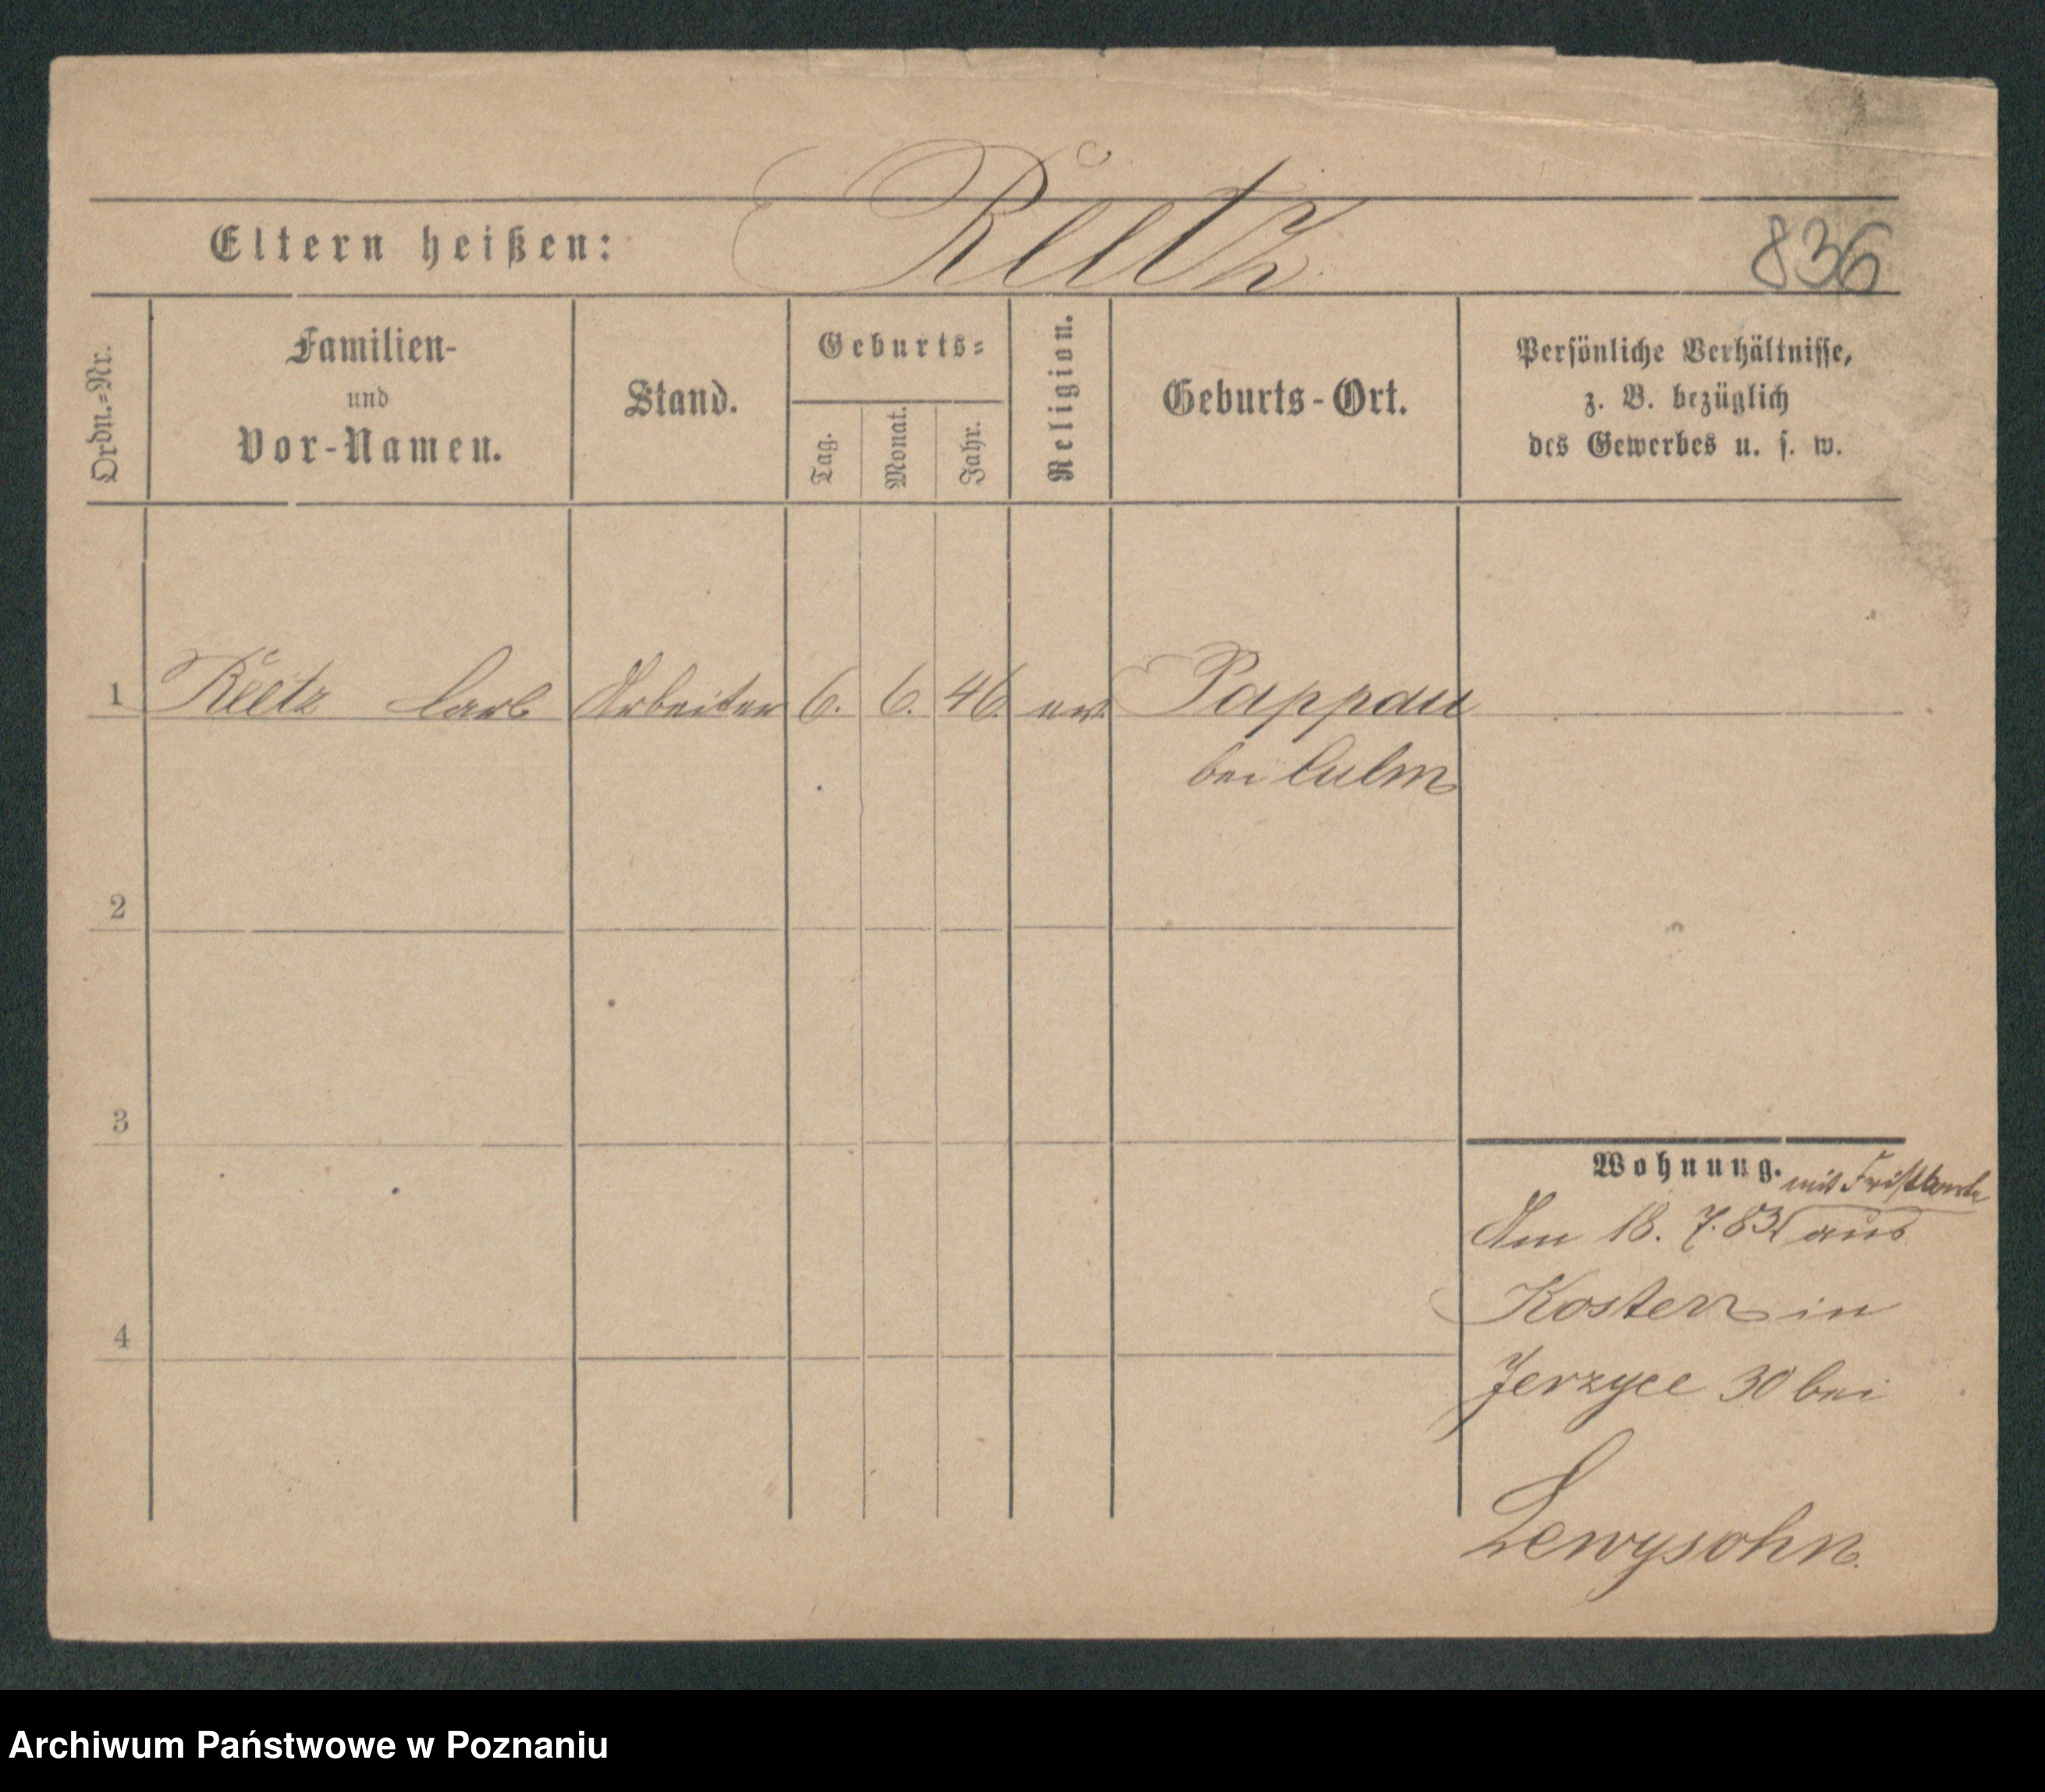 Eltern heißen: Reetz
836
Ordn.=Nr.
Familien-
und
Vor-Namen.
Stand.
Geburts=
Tag.
Monat.
Jahr.
Religion.
Geburts-Ort.
Persönliche Verhältnisse,
z. B. bezüglich
des Gewerbes u. s. w.
1 Reetz Carl Arbeiter 6. 6. 46. ev. Pappau
bei Culm
2
3
4
Wohnung.
mit
Am 18. 7. 83 aus
Kosten in
Jerzyce 30 bei
Lewysohn.
Archiwum Państwowe w Poznaniu